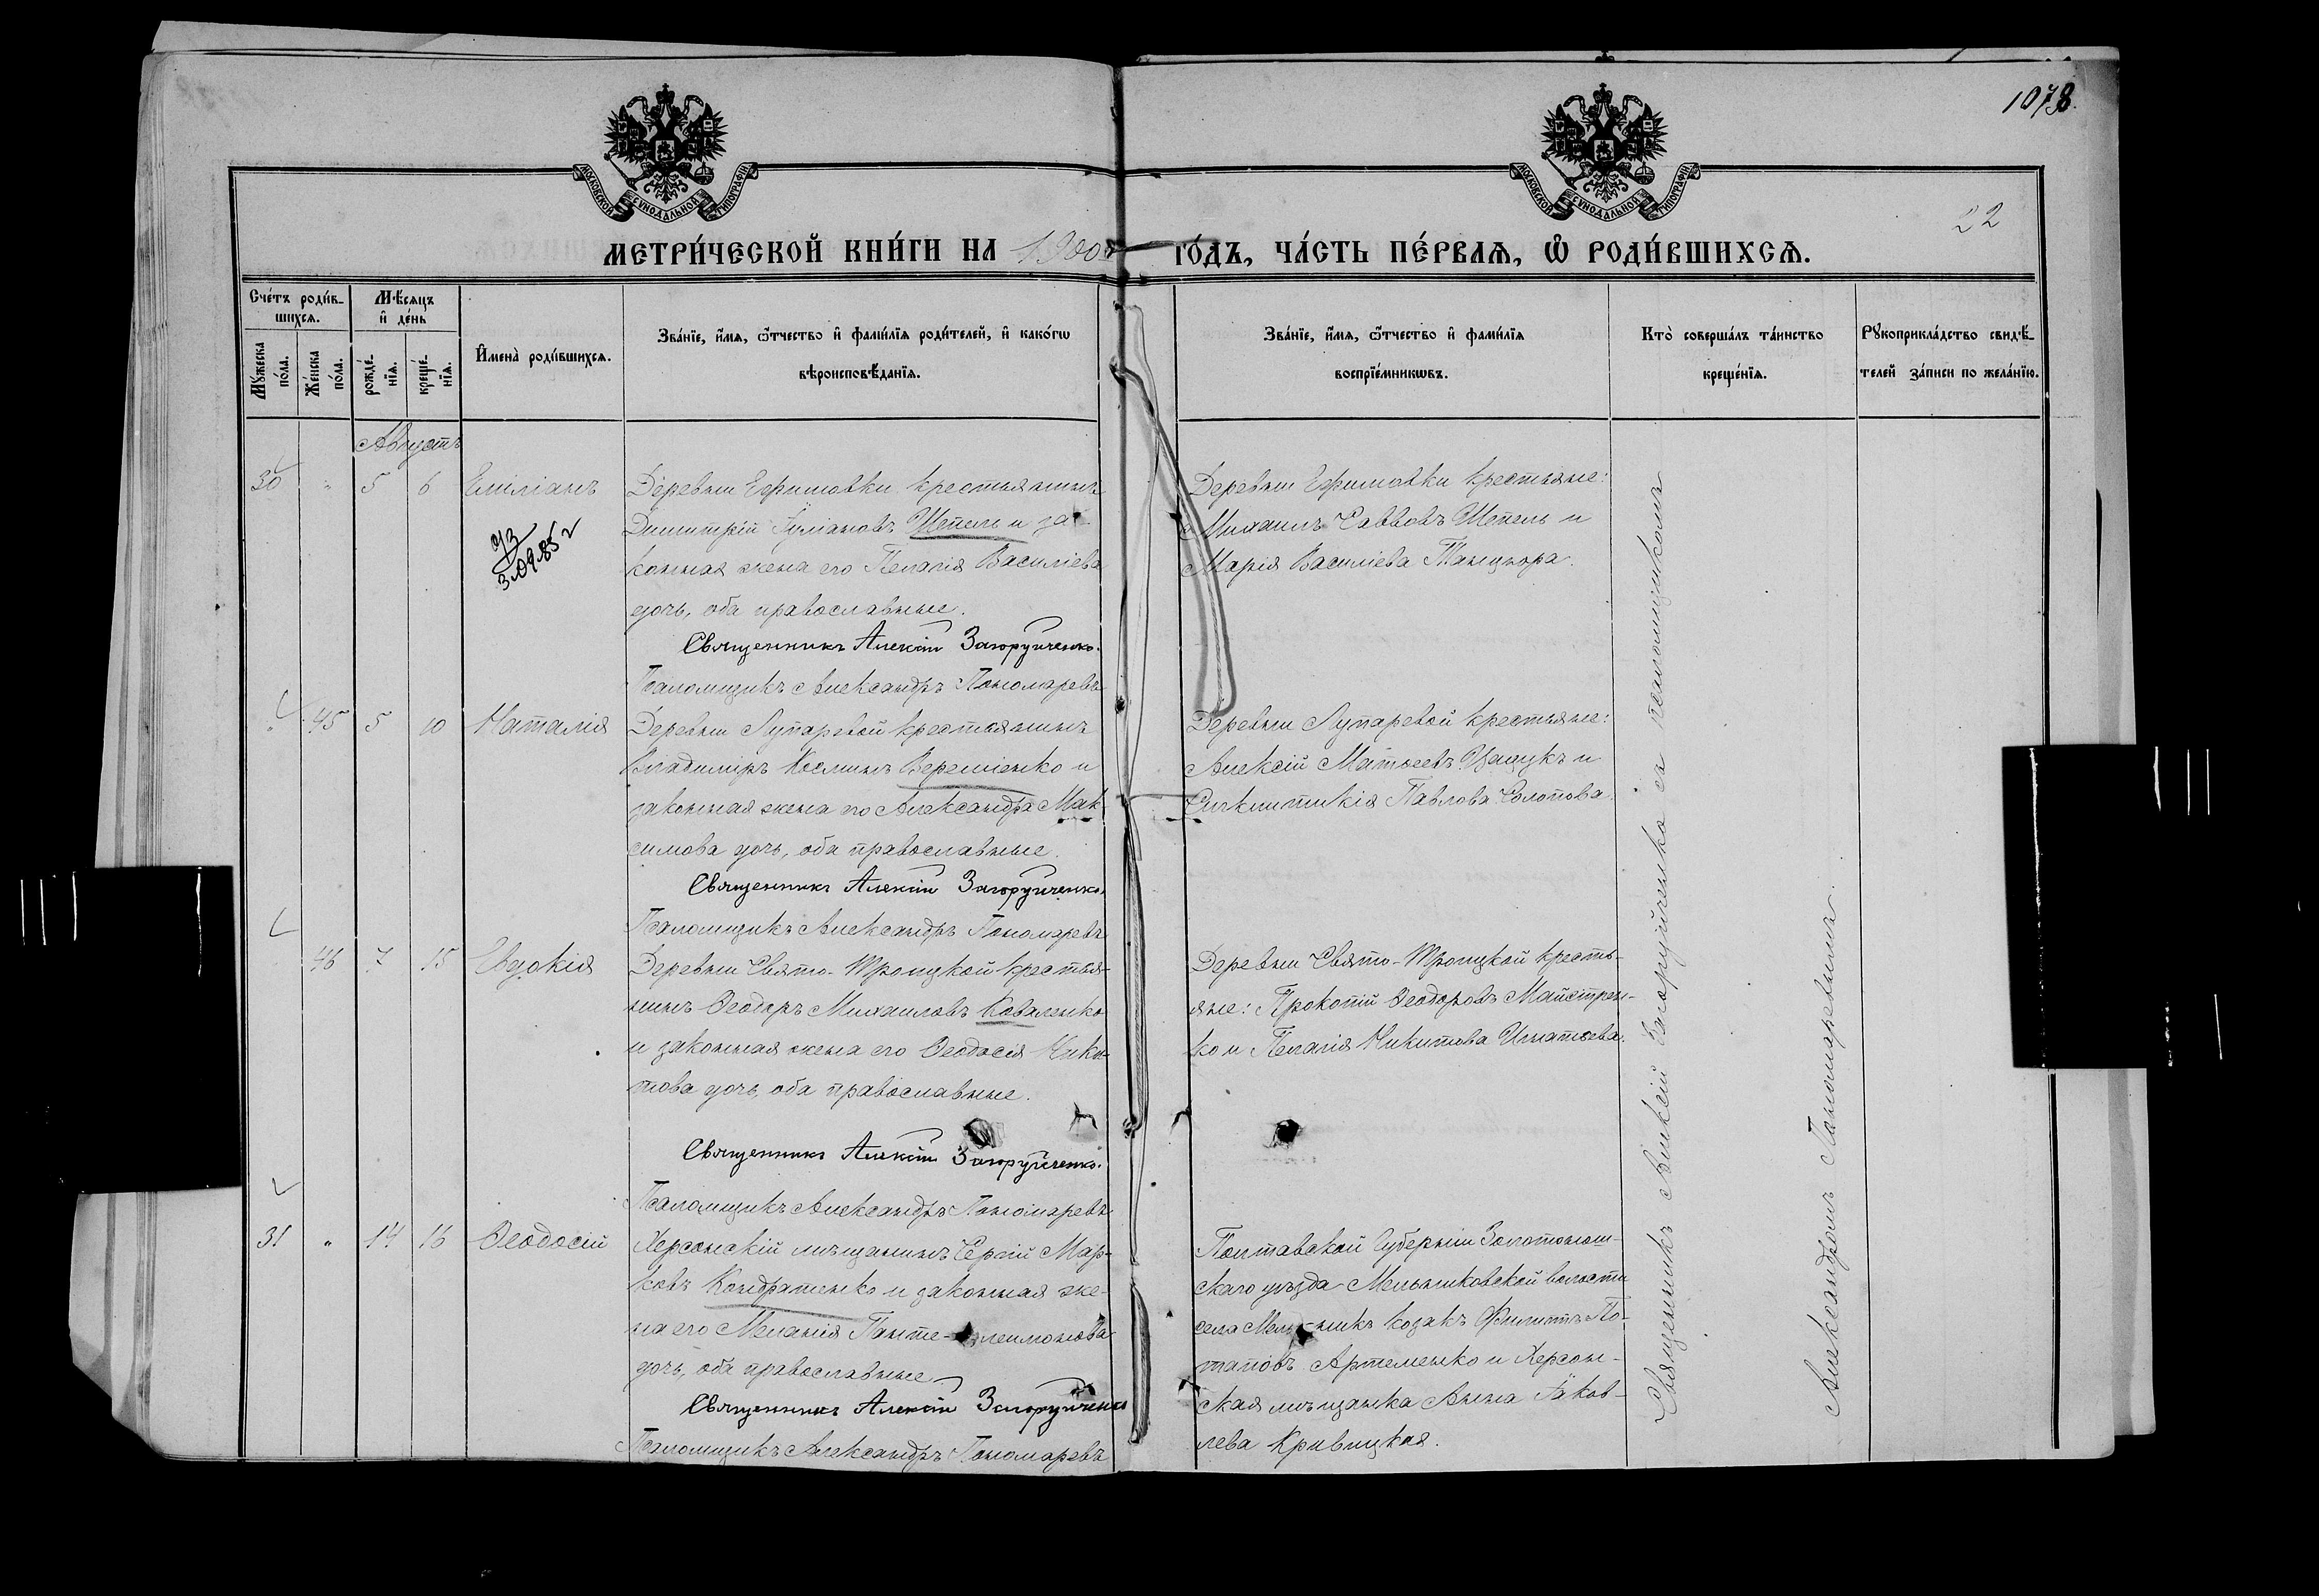 1078.
22
МОСКОВСКОЙ СѴНОДАЛЬНОЙ ТИПОГРАФІИ
МОСКОВСКОЙ СѴНОДАЛЬНОЙ ТИПОГРАФІИ
МЕТРИ́ЧЕСКОЙ КНИ́ГИ НА 1900 ГО́ДЪ, ЧА́СТЬ ПЕ́РВАѦ, Ѿ РОДИ́ВШИХСѦ.
Сче́тъ роди́в-
шихсѧ.
Мꙋ́жеска
по́ла.
Же́нска
по́ла.
Мѣ́сѧцъ
и҆ де́нь
рожде́-
нїѧ.
креще́-
нїѧ.
И҆мена̀ роди́вшихсѧ.
Зва́нїе, и҆́мѧ, ѻ҆́тчество и҆ фами́лїѧ роди́телей, и҆ како́гѡ
вѣроисповѣ́данїѧ.
Зва́нїе, и҆́мѧ, ѻ҆́тчество и҆ фами́лїѧ
воспрїе́мникѡвъ.
Кто̀ соверша́лъ та́инство
креще́нїѧ.
Рꙋкоприкла́дство свидѣ́-
телей за́писи по жела́нїю.
Августъ
30 " 5 6 Емиліанъ
3.09.85 г
Деревни Ефимовки крестьянинъ
Димитрій Іуліановъ Шепель и за-
конная жена его Пелагія Василіева
дочь, оба православные.
Священникъ Алексій Загоруйченко.
Псаломщикъ Александръ Пономаревъ
Деревни Ефимовки крестьяне:
Михаилъ Саввовъ Шепель и
Марія Василіева Танцюра.
" 45 5 10 Наталія
Деревни Лупаревой крестьянинъ
Владиміръ Косминъ Веремienко и
законная жена его Александра Мак-
симова дочь, оба православные.
Священникъ Алексій Загоруйченко.
Псаломщикъ Александръ Пономаревъ
Деревни Лупаревой крестьяне:
Алексій Матѳеевъ и
Синклитикія Павлова Солопова.
46 7 15 Евдокія
Деревни Свято-Троицкой крестья-
нинъ Ѳеодоръ Михаиловъ Коваленко
и законная жена его Ѳеодосія Ники-
това дочь, оба православные.
Священникъ Алексій Загоруйченко.
Псаломщикъ Александръ Пономаревъ
Деревни Свято-Троицкой кресть-
яне: Прокопій Ѳеодоровъ Майстрен-
ко и Пелагія Никитова Игнатьева.
31 " 14 16 Ѳеодосій
Херсонскій мѣщанинъ Сергій Мар-
ковъ Кондратенко и законная же-
на его Меланія Панте-леимонова
дочь, оба православные.
Священникъ Алексій Загоруйченко
Псаломщикъ Александръ Пономаревъ
Полтавской Губерніи Золотонош-
скаго уѣзда Мельниковской волости
села Мель-никъ козакъ Филиппъ По-
таповъ Артеменко и Херсон-
ская мѣщанка Анна Іаков-
лева Кривицкая.
Священникъ Алексій Загоруйченко съ псаломщикомъ
Александромъ Пономаревымъ.